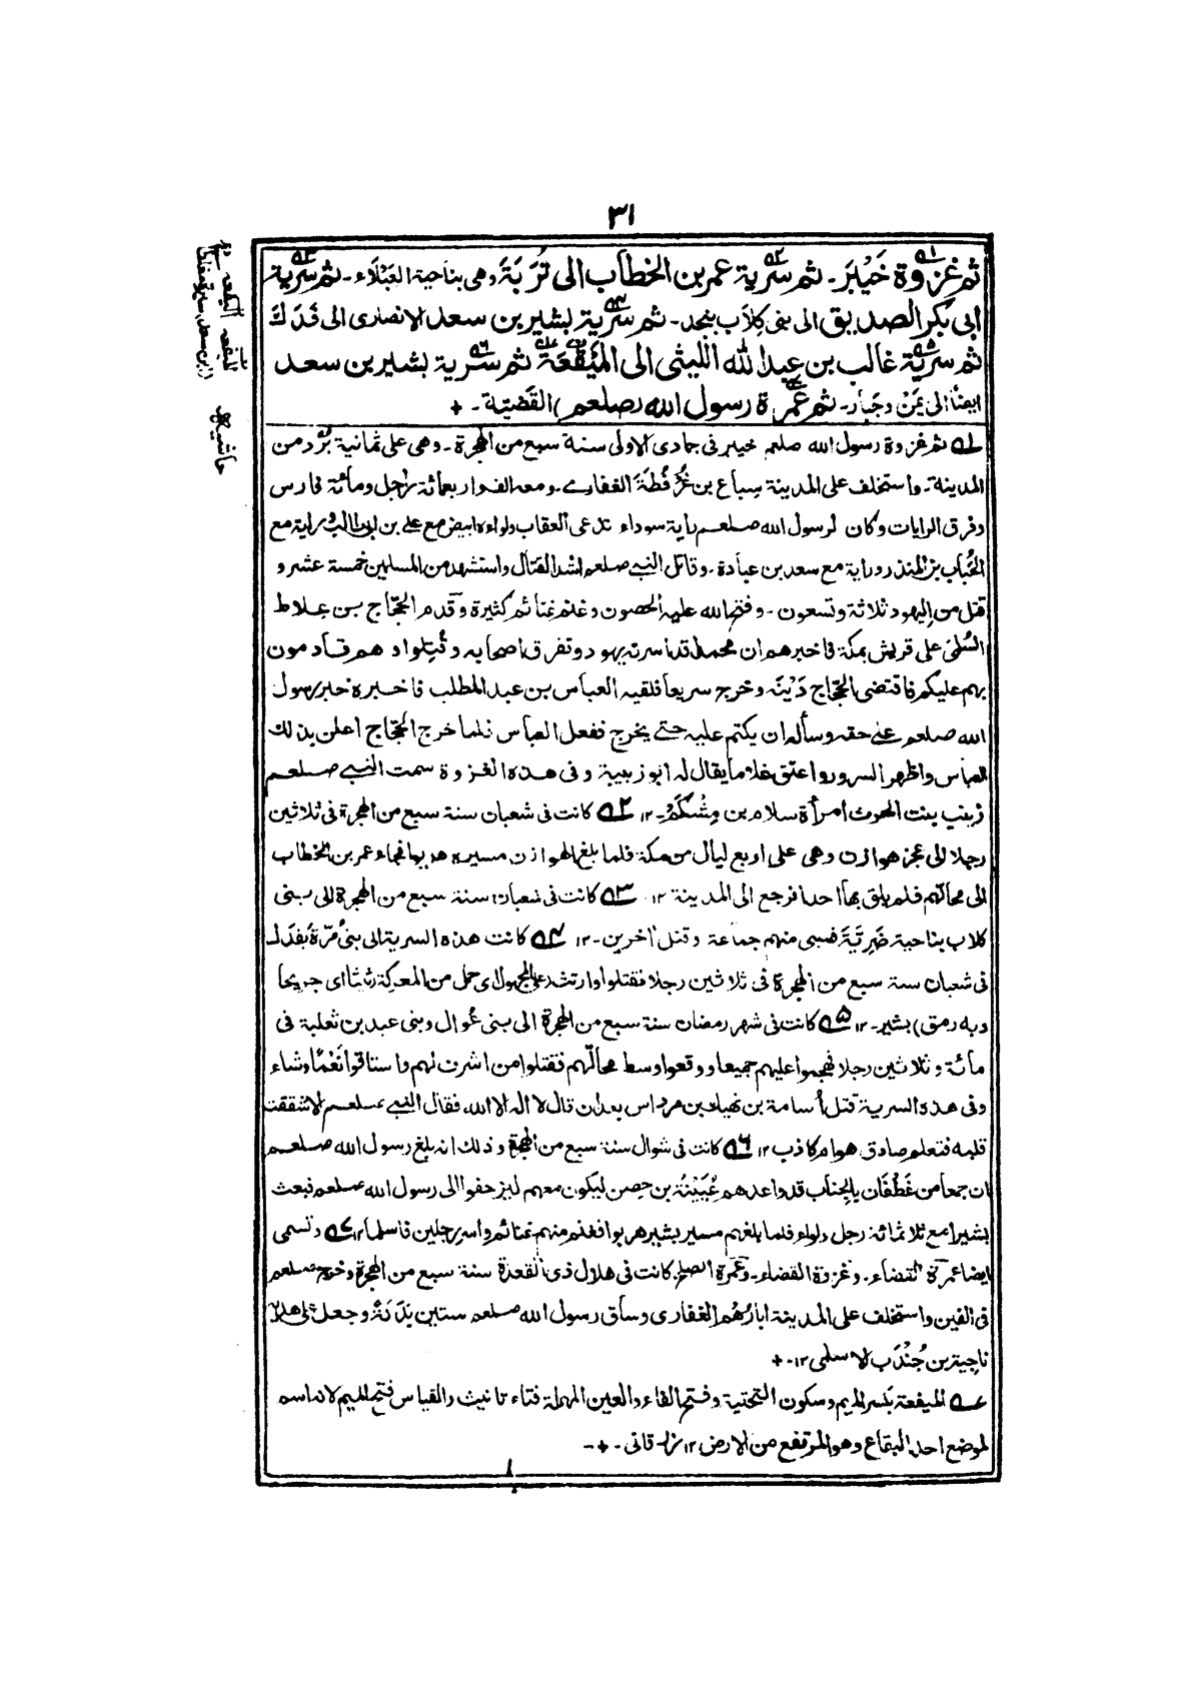 ٣١
ثم غزوة خَيْبَرَ ـ ثم سرية عمر بن الخطاب الى تُرَبَةَ وهى بناحية العَبْلَاء ـ ثم سرية
ابى بكر الصديق الى بنى كِلَاب بنجد ـ ثم سرية بشير بن سعد الانصارى الى فَدَكَ
ثم سرية غالب بن عبد الله الليثى الى المَيْفَعَة ثم سرية بشير بن سعد
ايضًا الى يَمَنْ وجَبَار ـ ثم عُمرة رسول الله (صلعم) القَضيّة ـ +
٥١ ثم غزوة رسول الله صلعم خيبر فى جمادى الاولى سنة سبع من الهجرة ـ وهى على ثمانية بُرُد من
المدينة ـ واستخلف على المدينة سِباع بن عُرْفُطَةَ الغفارے ـ ومعه الف واربعمائة راجل ومائة فارس
وفرق الرايات وكان لرسول الله صلعم راية سوداء تدعى العقاب ولواءه ابيض مع على بن ابى طالب وراية مع
الحُباب بن المنذر وراية مع سعد بن عبادة ـ وقاتل النبى صلعم اشد القتال واستشهد من المسلمين خمسة عشر و
قتل من اليهود ثلاثة وتسعون ـ وفتح الله عليه الحصون وغنم غنائم كثيرة وقدم الحجّاج بن علاط
السُلمى على قريش بمكة فاخبرهم ان محمدا قد اسرته يهود وتفرق اصحابه وقُتِلوا وهم قادمون
بهم عليكم فاقتضى الحجّاج دَيْنَه وخرج سريعا فلقيه العباس بن عبد المطلب فاخبره خبر رسول
الله صلعم على حقه وسأله ان يكتم عليه حتى يخرج ففعل العباس فلما خرج الحجّاج اعلن بذلك
العباس واظهر السرور واعتق غلاما يقال له ابو زبيبة وفى هذه الغزوة سمت النبى صلعم
زينب بنت الحرث امرأة سلام بن مِشْكَمْ ـ ١٢ ٥٢ كانت فى شعبان سنة سبع من الهجرة فى ثلاثين
رجلا الى عجز هوازن وهى على اربع ليال من مكة فلما بلغ الهوازن مسيره هربوا فجاء عمر بن الخطاب
الى محالّهم فلم يلق بها احدا فرجع الى المدينة ١٢ ٥٣ كانت فى شعبان سنة سبع من الهجرة الى بنى
كلاب بناحية ضَرِيّةَ فسبى منهم جماعة وقتل آخرين ـ ١٢ ٥٤ كانت هذه السرية الى بنى مُرّة بفدك
فى شعبان سنة سبع من الهجرة فى ثلاثين رجلا فقتلوا وارتث (على المجهول اى حمل من المعركة رثيثا اى جريحا
وبه رمق) بشير ـ ١٢ ٥٥ كانت فى شهر رمضان سنة سبع من الهجرة الى بنى عُوال وبنى عبد بن ثعلبة فى
مائة وثلاثين رجلا فهجموا عليهم جميعا ووقعوا وسط محالّهم فقتلوا من اشرف لهم واستاقوا نَعْمًا وشاء
وفى هذه السرية قتل أسامة بن نهيك بن مرداس بعد ان قال لا اله الا الله، فقال النبى صلعم الا شققت
قلبه فتعلم صادق هو ام كاذب ١٢ ٥٦ كانت فى شوال سنة سبع من الهجرة وذلك انه بلغ رسول الله صلعم
ان جمعا من غَطْفَان بالجناب قد واعدهم عُيَيْنَةُ بن حِصن ليكون معهم ليزحفوا الى رسول الله صلعم فبعث
بشيرا مع ثلاثمائة رجل ولواء فلما بلغهم مسير بشير هربوا فغنم منهم غنائم واسر رجلين فاسلما ١٢ ٥٧ وتسمى
ايضا عمرة القضاء ـ وغزوة القضاء ـ وعمرة الصلح كانت فى هلال ذى القعدة سنة سبع من الهجرة وخرج صلعم
فى الفين واستخلف على المدينة ابارُهْم الغفارى وساق رسول الله صلعم ستين بَدَنَةً وجعل على هديه
ناجية بن جُنْدَب الاسلمى ١٢ ـ +
الميفعة بكسر الميم وسكون التحتية وفتح الفاء والعين المهملة فتاء تانيث والقياس فتح الميم لانه اسم
لموضع احد البقاع وهو المرتفع من الارض ١٢ زرقانى ـ + ـ